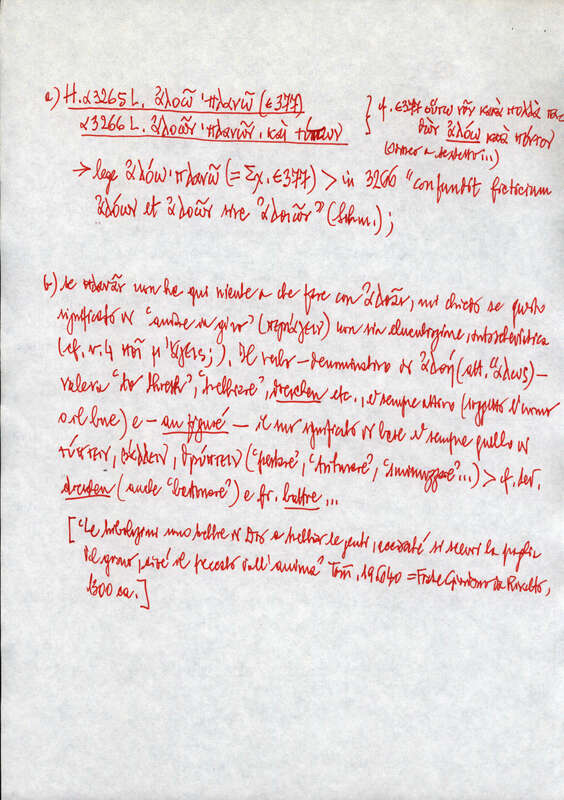 a) H. α3265 L. ἀλοῶ· πλανῶ (ε 377)
α3266 L. ἀλοῶν· πλανῶν. καὶ τύπτων
} cf. ε 377 οὕτω νῦν κακὰ πολλὰ πα-
θὼν ἀλόω κατὰ πόντον
→ lege ἀλόω· πλανῶ (= Σχ. ε 377) > in 3266 "confundit ficticium
ἀλόων et ἀλοῶν sive ἀλοιῶν" (Schm.);
b) se πλανᾶν non ha qui niente a che fare con ἀλοᾶν, mi chiedo se questo
significato di "andare in giro" (περιάγειν) non sia
(cf. v. 4 ποῖ μ' ἄγεις;). Il verbo – denominativo di ἀλωή (att. ἅλως) –
valeva "to thresh", "trebbiare", dreschen etc., è sempre attivo (soggetto l'uomo
o il bue) e – au figuré – il suo significato di base è sempre quello di
τύπτειν, βάλλειν, θρύπτειν ("pestare", "triturare", "sminuzzare"...) > cf. ted.
dreschen (anche "bastonare") e fr. battre ...
["Le tribolazioni sono trebbie di Dio a trebbiar le genti, acciocché si sceveri la paglia
dal grano, cioè il peccato dall'anima" Tom. 196040 = Frate Giordano da Rivalto,
1300 ca.]